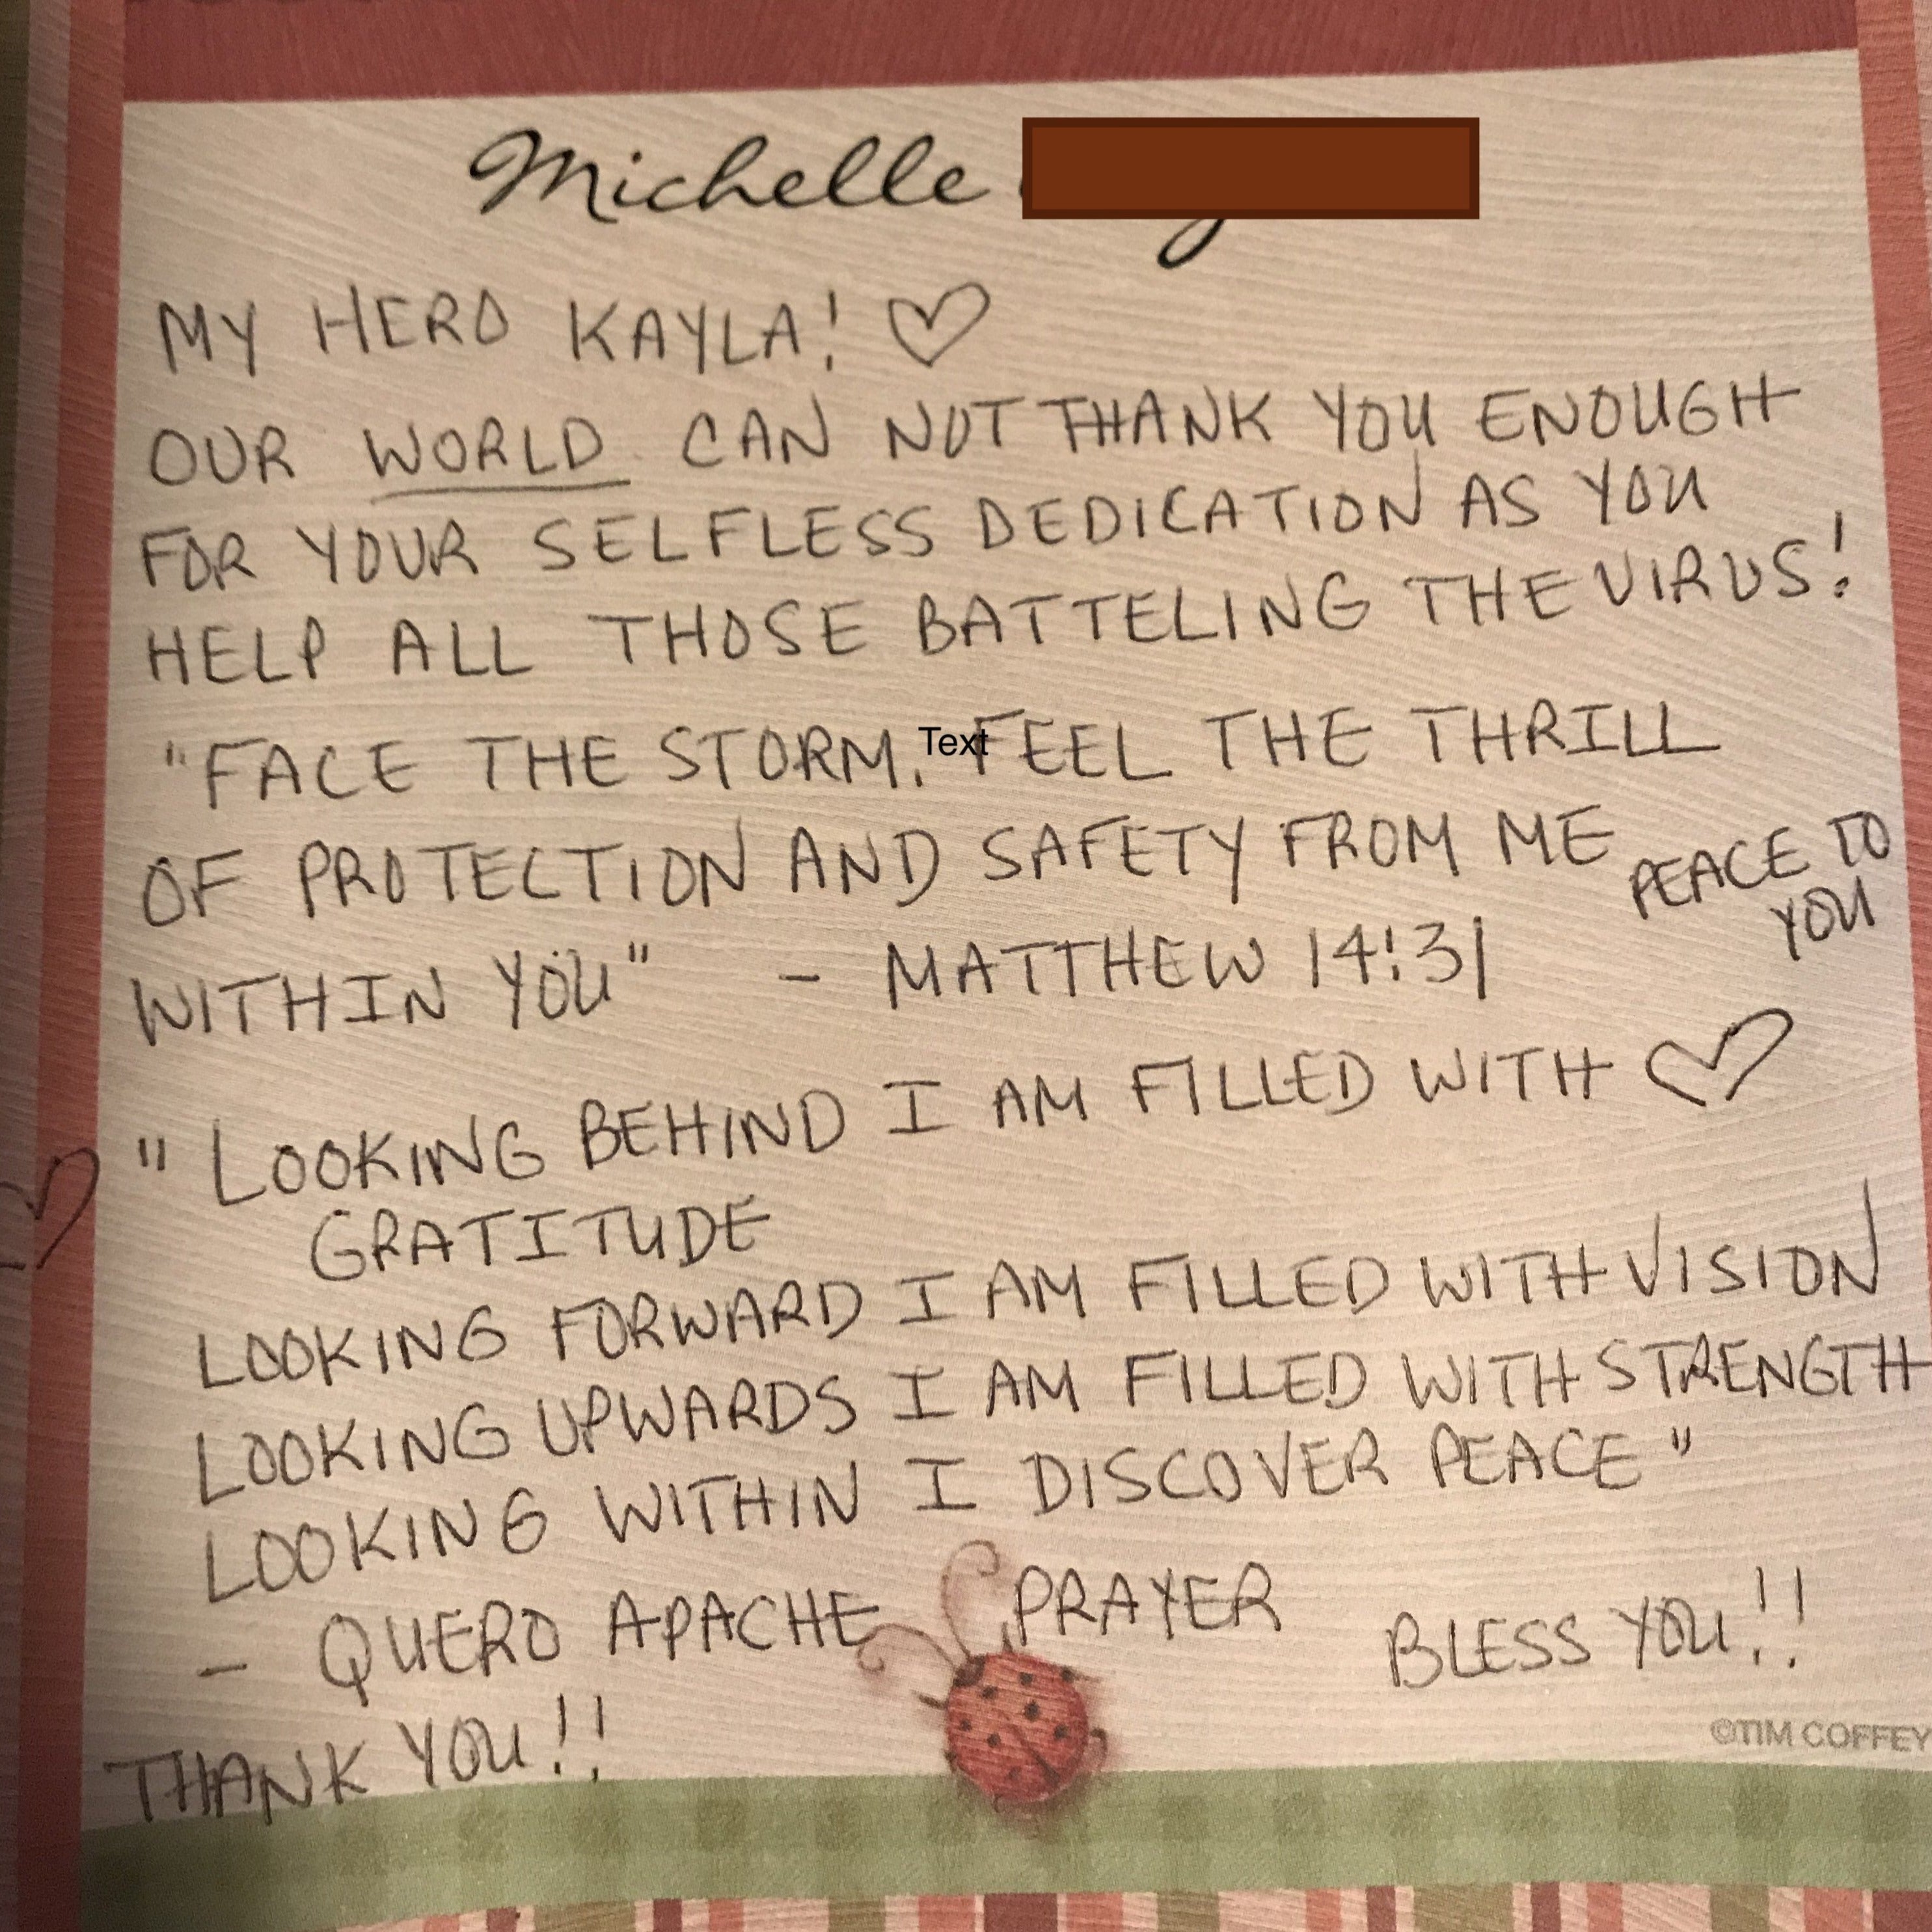 Michelle
MY HERO KAYLA! ♡
OUR WORLD CAN NOT THANK YOU ENOUGH
FOR YOUR SELFLESS DEDICATION AS YOU
HELP ALL THOSE BATTELING THE VIRUS!
"FACE THE STORM. Text FEEL THE THRILL
OF PROTECTION AND SAFETY FROM ME
PEACE TO
YOU
WITHIN YOU" - MATTHEW 14:31
"LOOKING BEHIND I AM FILLED WITH ♡
GRATITUDE
LOOKING FORWARD I AM FILLED WITH VISION
LOOKING UPWARDS I AM FILLED WITH STRENGTH
LOOKING WITHIN I DISCOVER PEACE"
- QUERO APACHE PRAYER
BLESS YOU!!
THANK YOU!!
©TIM COFFEY